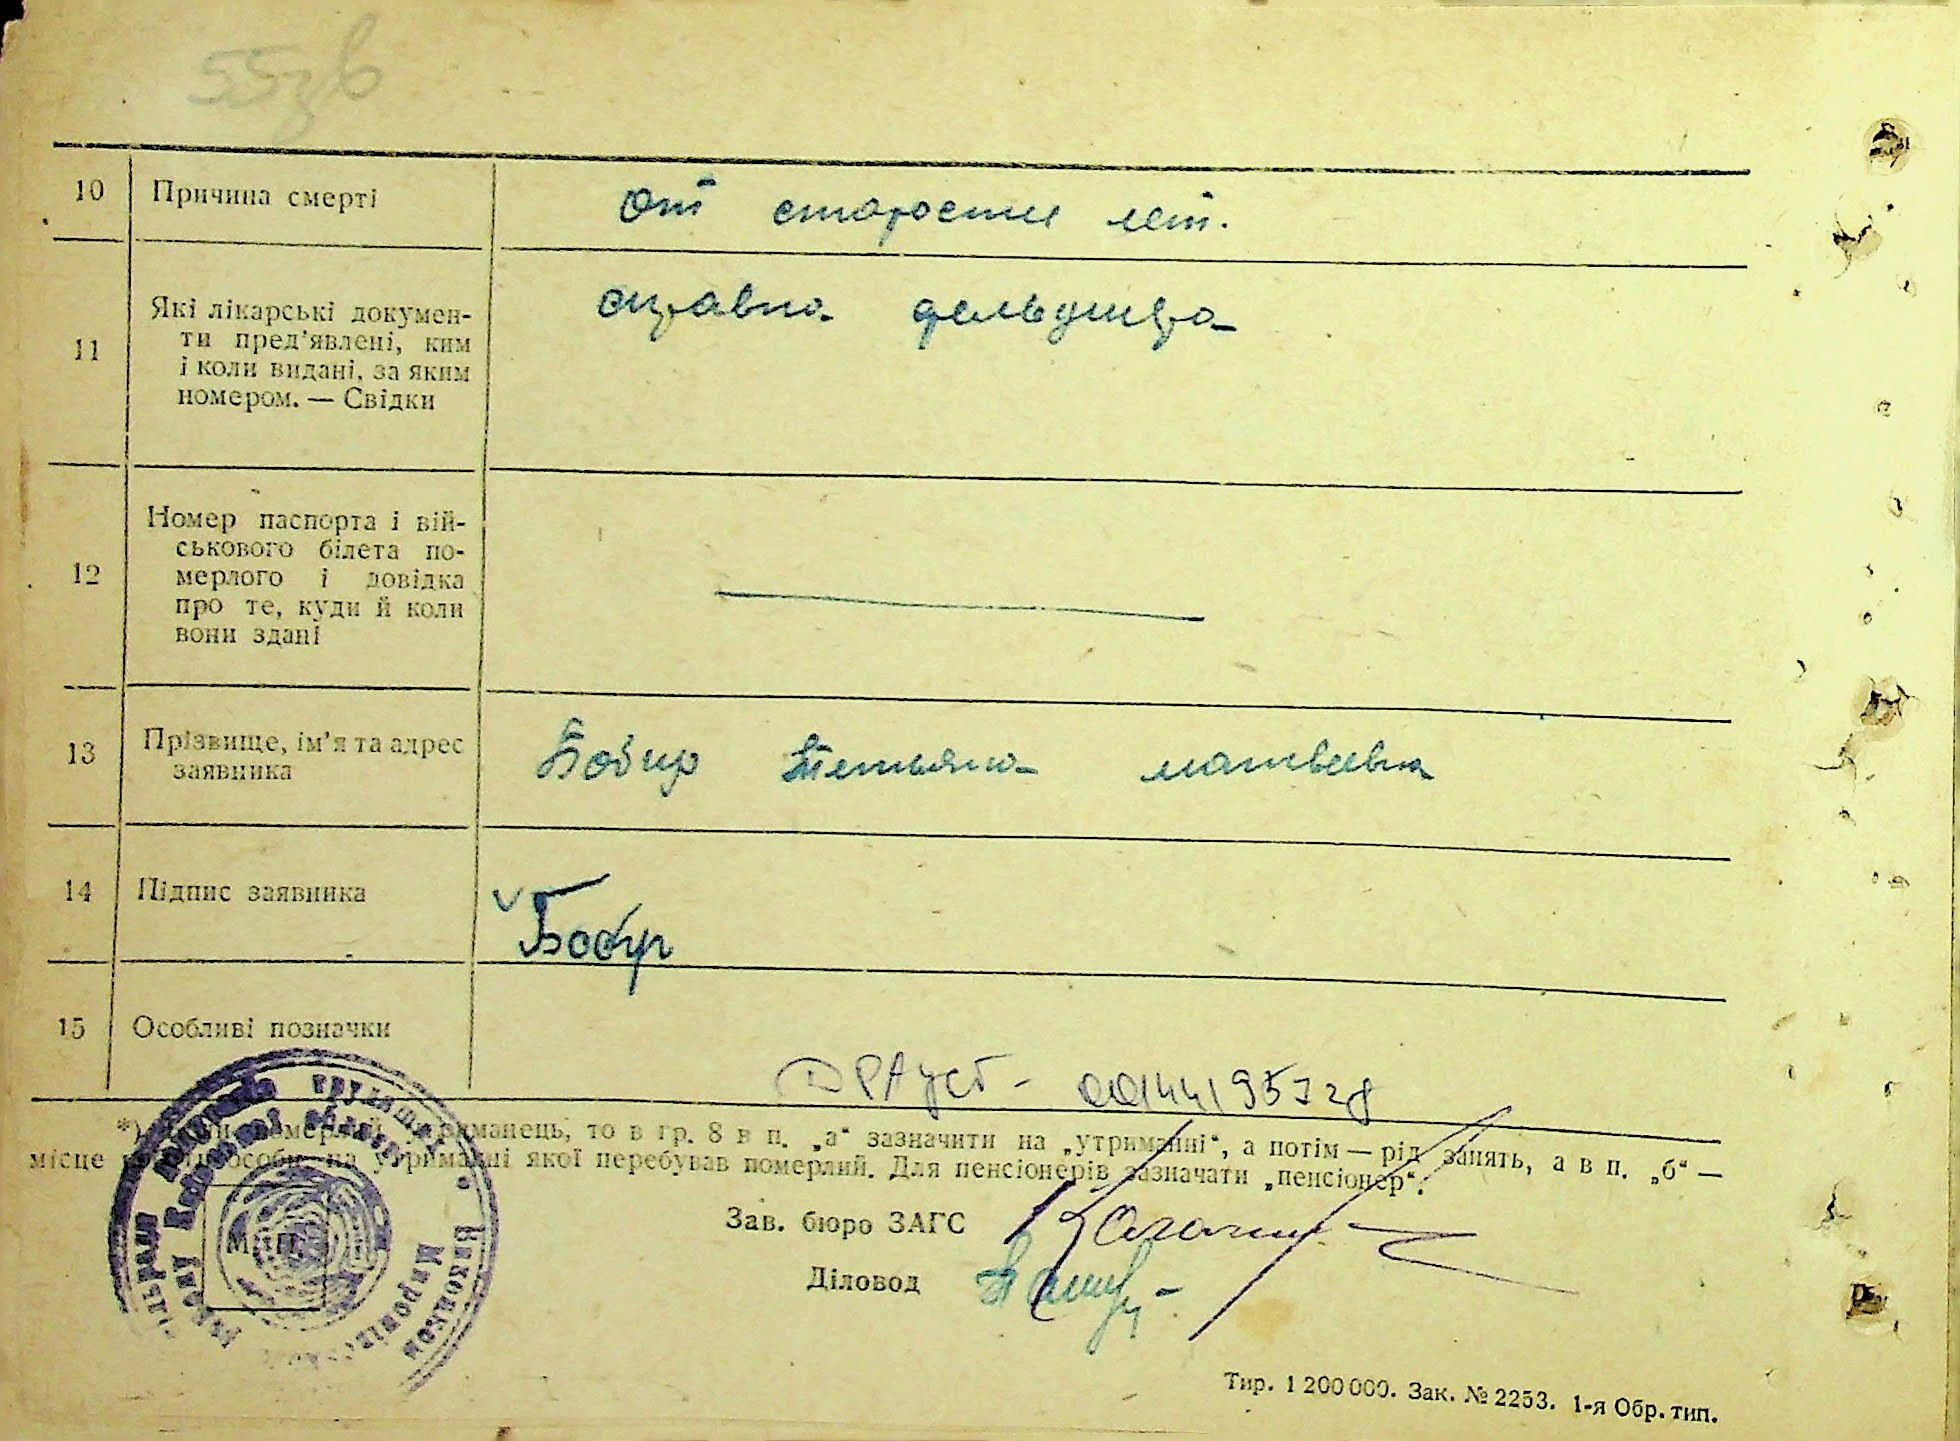 10 Причина смерті От старости лет.
11 Які лікарські докумен-
ти пред'явлені, ким
і коли видані, за яким
номером. — Свідки
справка фельдшера
12 Номер паспорта і вій-
ськового білета по-
мерлого і довідка
про те, куди й коли
вони здані
13 Прізвище, ім'я та адрес
заявника
Бобир Тетьяна матвеевна
14 Підпис заявника
Бобир
15 Особливі позначки
ДРАУСГ - 00144195728
*) померлий утриманець, то в гр. 8 в п. „а“ зазначити на „утриманні“, а потім — рід занять, а в п. „б“ —
місце особи, на утриманні якої перебував померлий. Для пенсіонерів зазначати „пенсіонер“.
Зав. бюро ЗАГС
Діловод
М. П.
Виконком
Тир. 1 200 000. Зак. № 2253. 1-я Обр. тип.